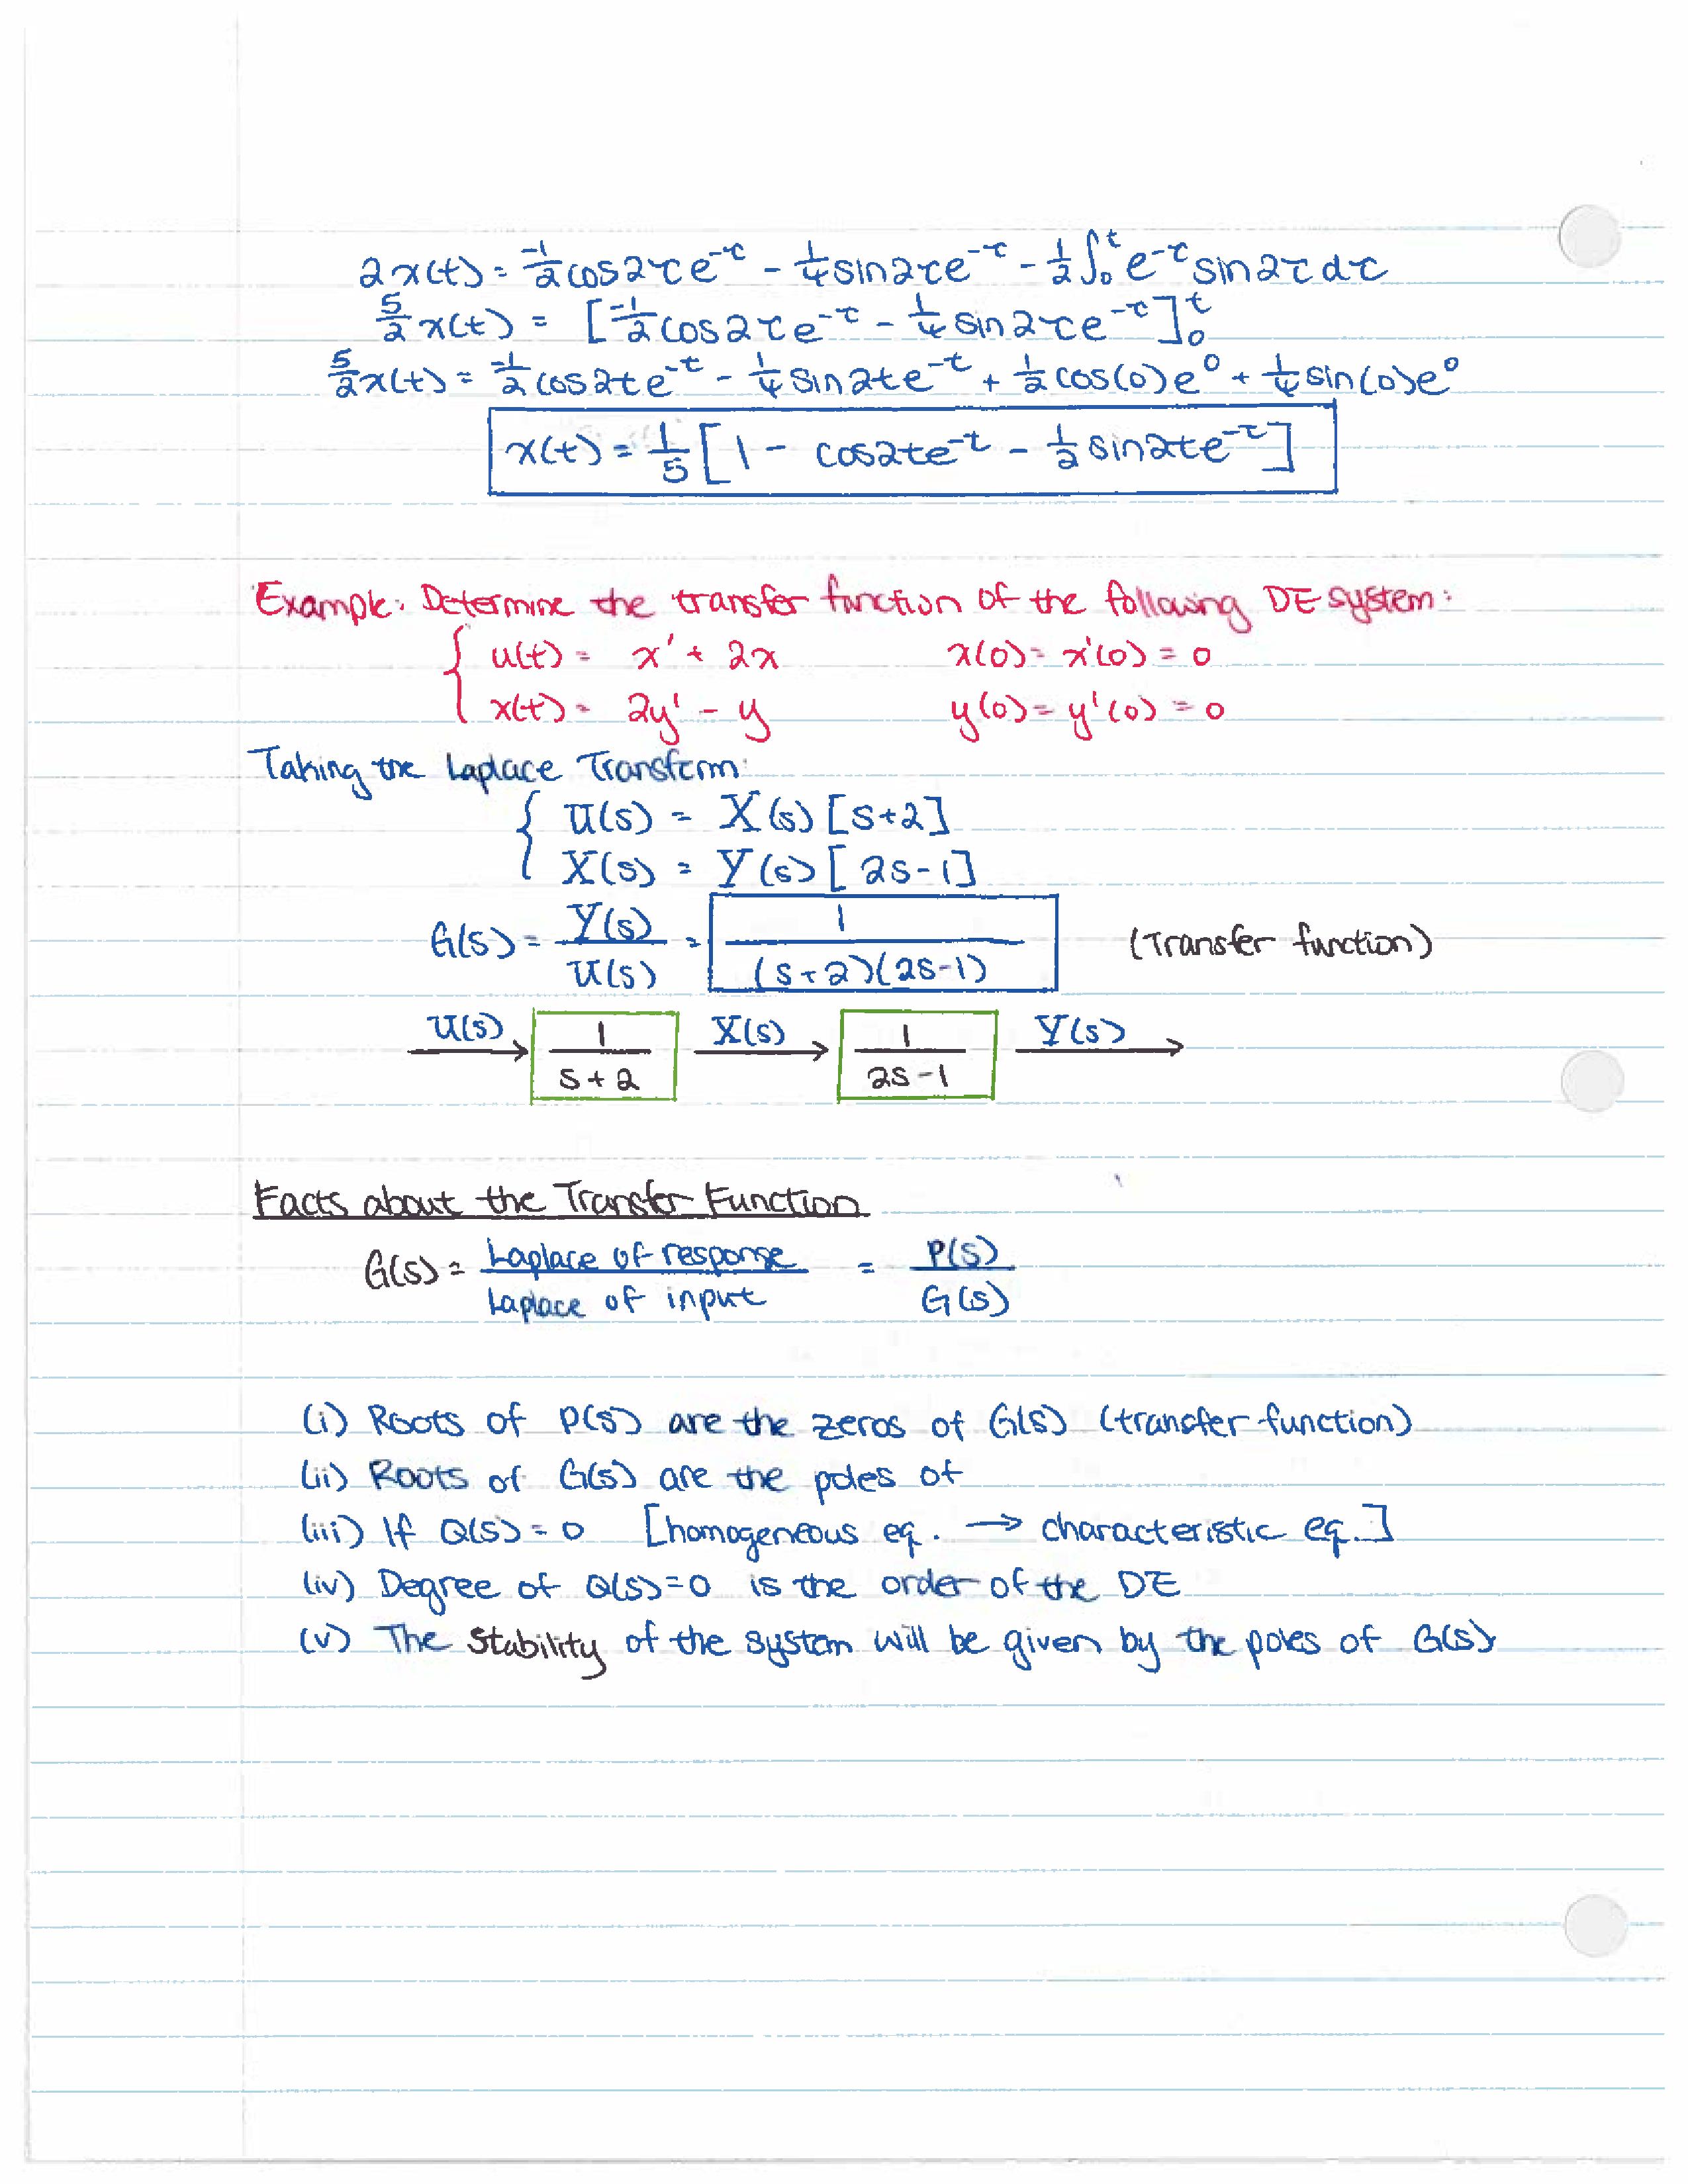 2x(t) = -1/2 cos2τe^-τ - 1/4 sin2τe^-τ - 1/2 ∫₀^t e^-τ sin2τdτ
5/2 x(t) = [-1/2 cos2τe^-τ - 1/4 sin2τe^-τ]₀^t
5/2 x(t) = -1/2 cos2te^-t - 1/4 sin2te^-t + 1/2 cos(0)e^0 + 1/4 sin(0)e^0
x(t) = 1/5 [1 - cos2te^-t - 1/2 sin2te^-t]
Example: Determine the transfer function of the following DE system:
{ u(t) = x' + 2x x(0) = x'(0) = 0
x(t) = 2y' - y y(0) = y'(0) = 0
Taking the Laplace Transform:
{ U(s) = X(s) [s+2]
X(s) = Y(s) [2s-1]
G(s) = Y(s)/U(s) = 1/((s+2)(2s-1)) (Transfer function)
U(s) → 1/(s+2) X(s) → 1/(2s-1) Y(s) →
Facts about the Transfer Function
G(s) = Laplace of response/Laplace of input = P(s)/G(s)
(i) Roots of P(s) are the zeros of G(s) (transfer function)
(ii) Roots of G(s) are the poles of
(iii) If Q(s) = 0 [homogeneous eq. → characteristic eq.]
(iv) Degree of Q(s)=0 is the order of the DE
(v) The stability of the system will be given by the poles of G(s)